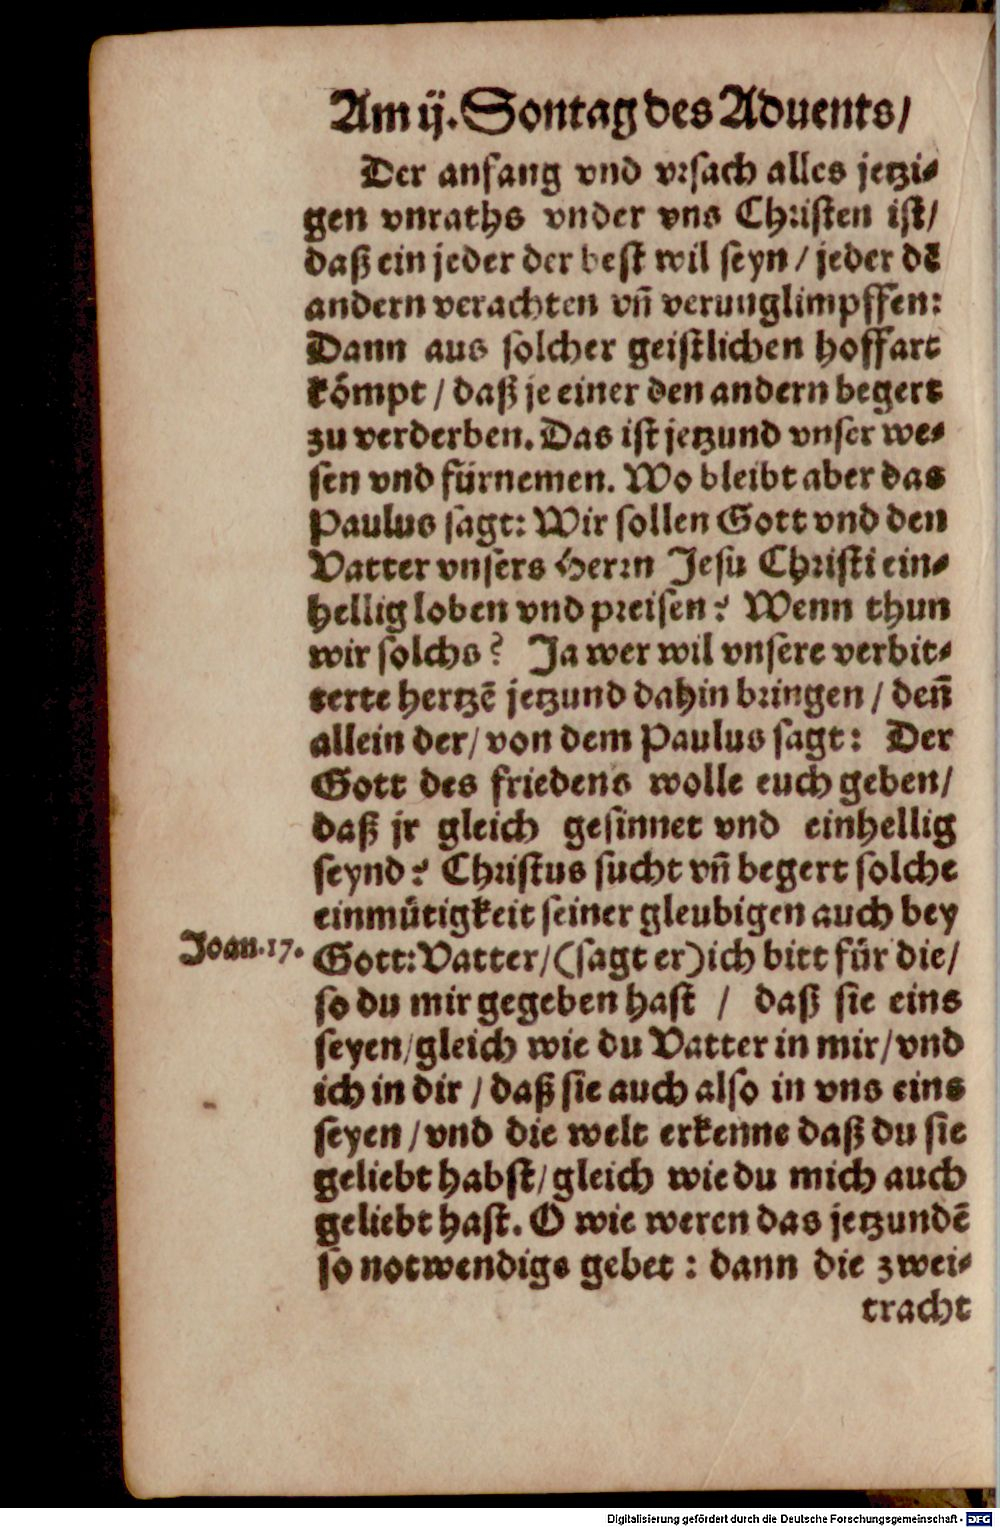 Am ij. Sontag des Aduents/
Der anfang vnd vrsach alles jetzi-
gen vnraths vnder vns Christen ist/
daß ein jeder der best wil seyn / jeder dē
andern verachten vñ verunglimpffen:
Dann aus solcher geistlichen hoffart
kömpt / daß je einer den andern begert
zu verderben. Das ist jetzund vnser we-
sen vnd fürnemen. Wo bleibt aber das
Paulus sagt: Wir sollen Gott vnd den
Vatter vnsers Herrn Jesu Christi ein-
hellig loben vnd preisen? Wenn thun
wir solchs? Ja wer wil vnsere verbit-
terte hertzē jetzund dahin bringen / deñ
allein der/ von dem Paulus sagt: Der
Gott des friedens wolle euch geben/
daß jr gleich gesinnet vnd einhellig
seynd? Christus sucht vñ begert solche
einmütigkeit seiner gleubigen auch bey
Joan.17.
Gott: Vatter/ (sagt er) ich bitt für die/
so du mir gegeben hast / daß sie eins
seyen/ gleich wie du Vatter in mir/ vnd
ich in dir / daß sie auch also in vns eins
seyen / vnd die welt erkenne daß du sie
geliebt habst/ gleich wie du mich auch
geliebt hast. O wie weren das jetzundē
so notwendige gebet: dann die zwei-
tracht
Digitalisierung gefördert durch die Deutsche Forschungsgemeinschaft - DFG